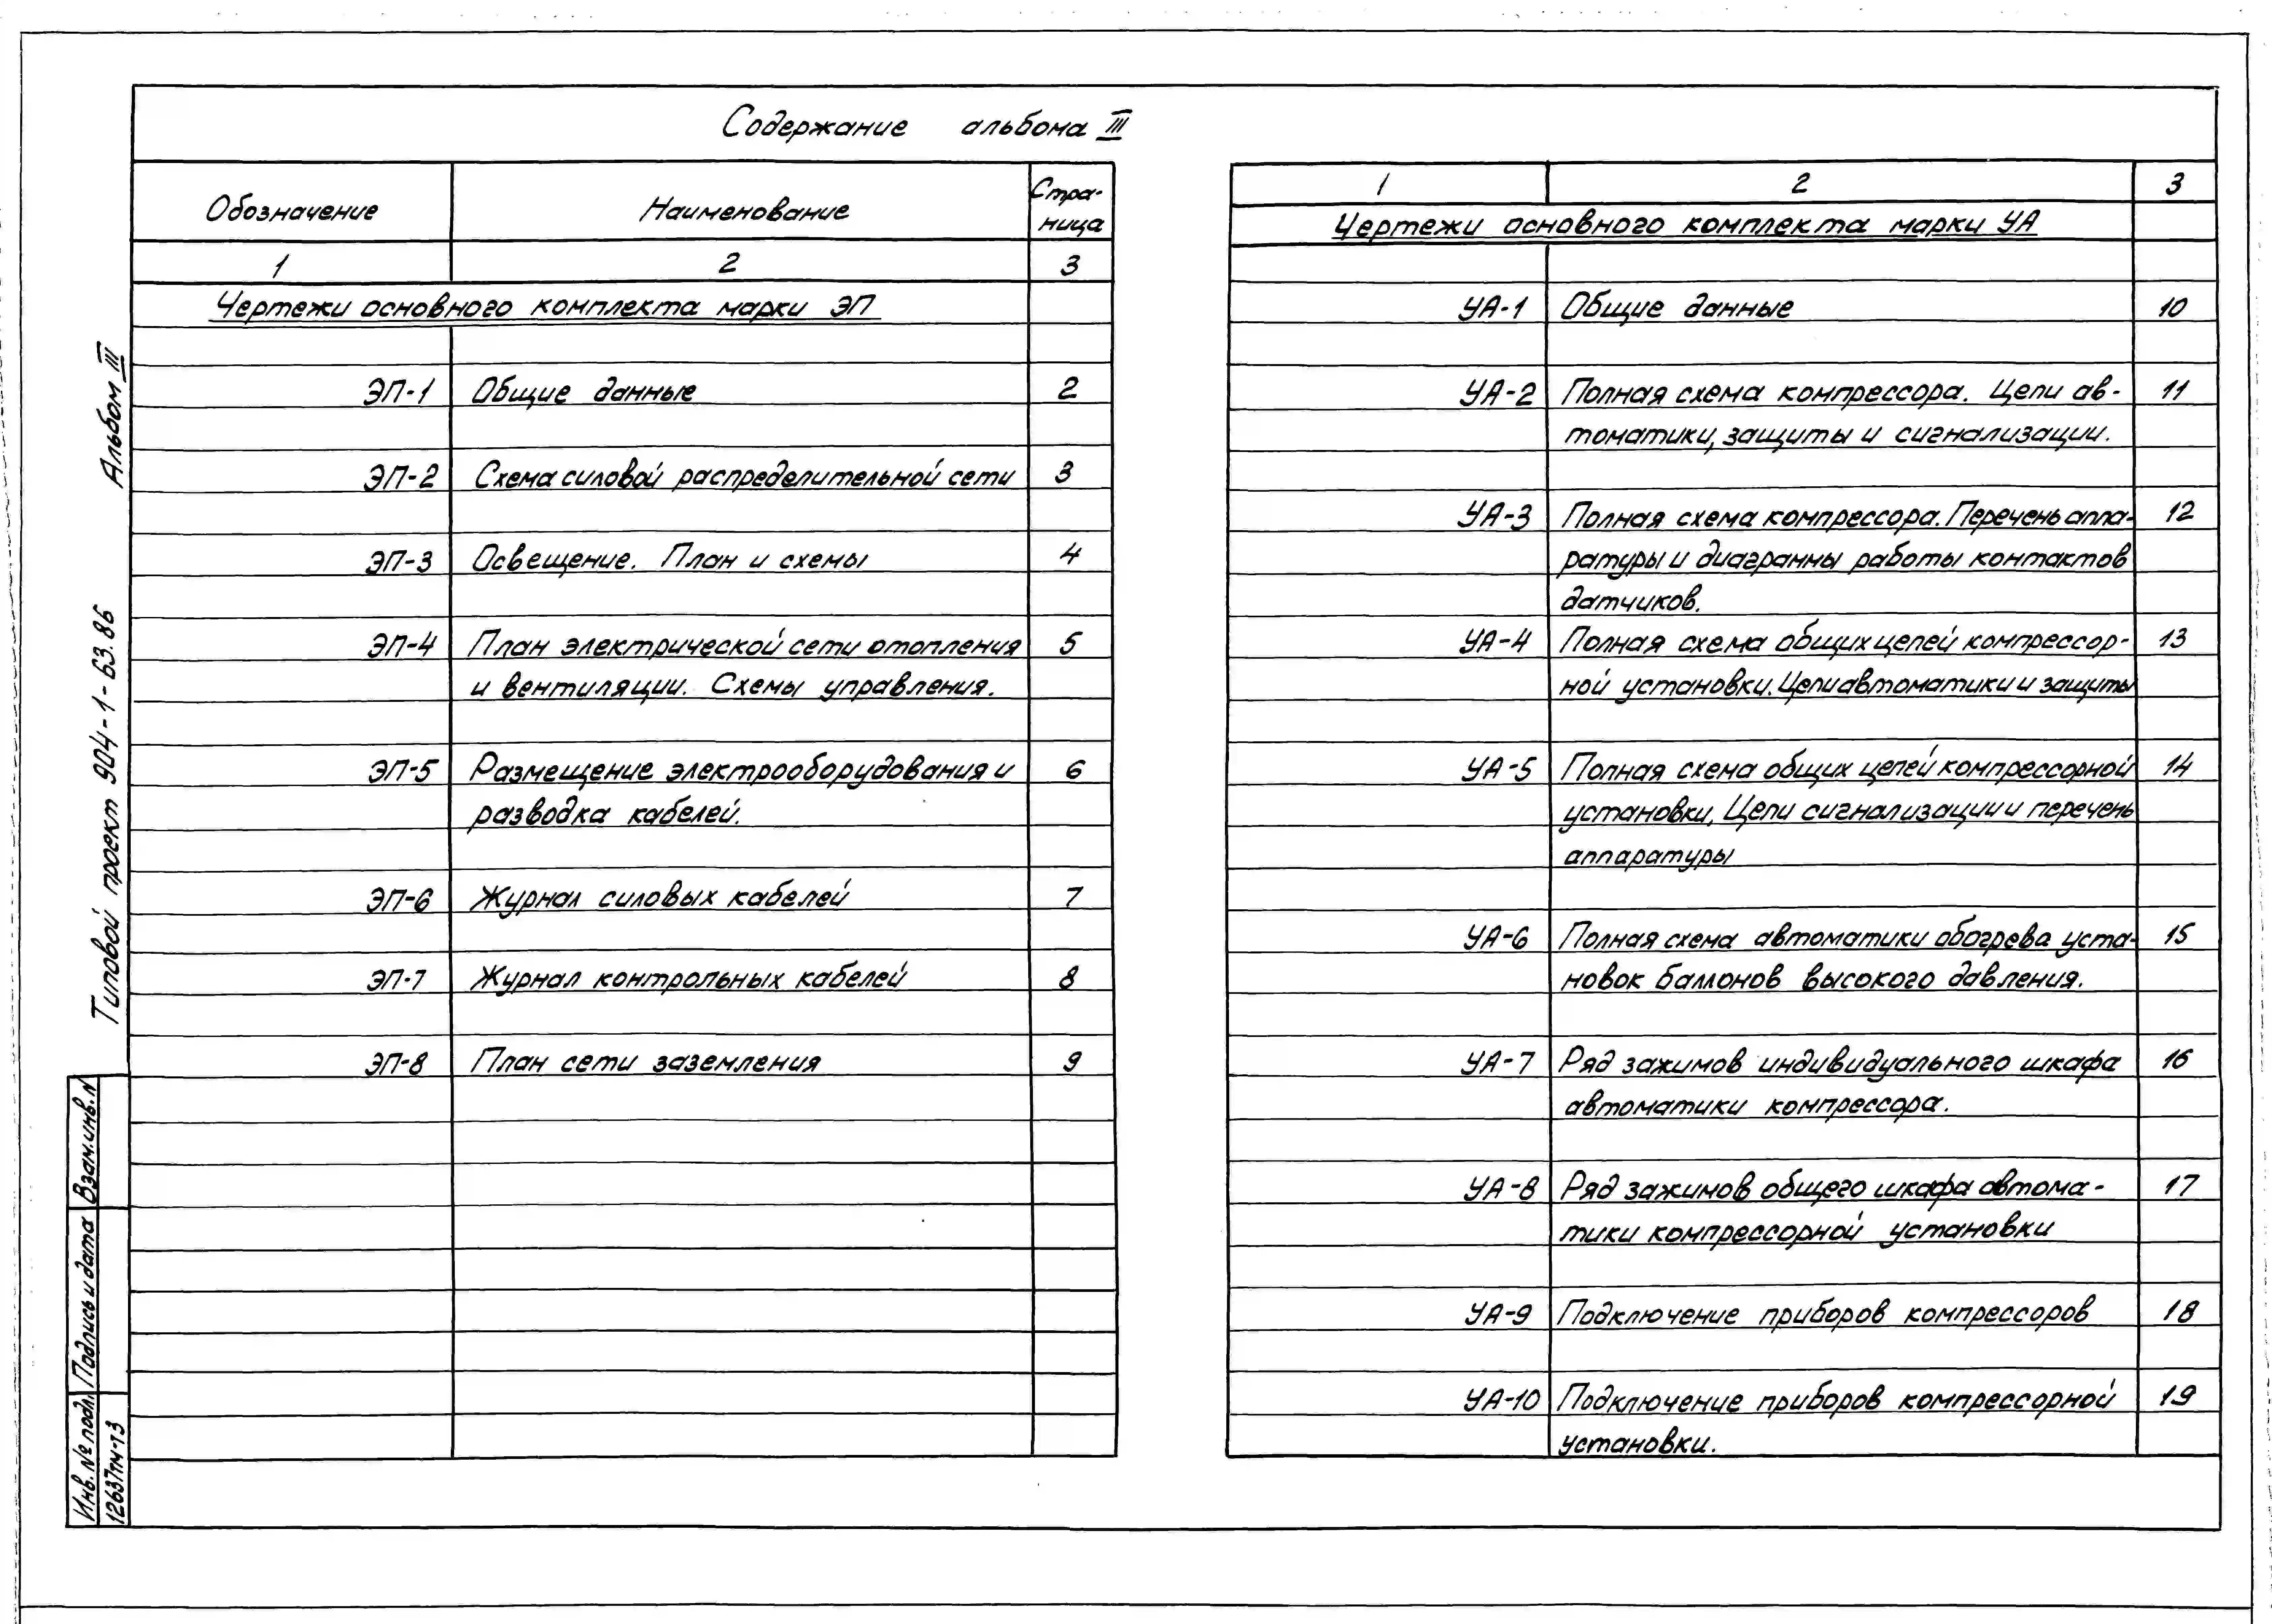 Содержание альбома III
Обозначение
Наименование
Стра-
ница
1 2 3
Чертежи основного комплекта марки ЭП
ЭП-1 Общие данные 2
ЭП-2 Схема силовой распределительной сети 3
ЭП-3 Освещение. План и схемы 4
ЭП-4 План электрической сети отопления 5
и вентиляции. Схемы управления.
ЭП-5 Размещение электрооборудования и 6
разводка кабелей.
ЭП-6 Журнал силовых кабелей 7
ЭП-7 Журнал контрольных кабелей 8
ЭП-8 План сети заземления 9
1 2 3
Чертежи основного комплекта марки УА
УА-1 Общие данные 10
УА-2 Полная схема компрессора. Цепи ав- 11
томатики, защиты и сигнализации.
УА-3 Полная схема компрессора. Перечень аппа- 12
ратуры и диаграммы работы контактов
датчиков.
УА-4 Полная схема общих цепей компрессор- 13
ной установки. Цепи автоматики и защиты
УА-5 Полная схема общих цепей компрессорной 14
установки, Цепи сигнализации и перечень
аппаратуры
УА-6 Полная схема автоматики обогрева уста- 15
новок баллонов высокого давления.
УА-7 Ряд зажимов индивидуального шкафа 16
автоматики компрессора.
УА-8 Ряд зажимов общего шкафа автома- 17
тики компрессорной установки
УА-9 Подключение приборов компрессоров 18
УА-10 Подключение приборов компрессорной 19
установки.
Типовой проект 904-1-63.86 Альбом III
Взам.инв.N
Подпись и дата
Инв. № подл.
12637тм-т3